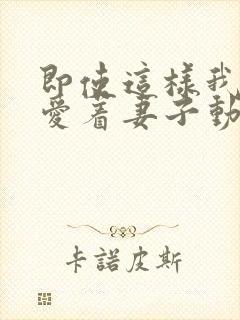 即使這樣我
愛着妻子動
卡諾皮斯